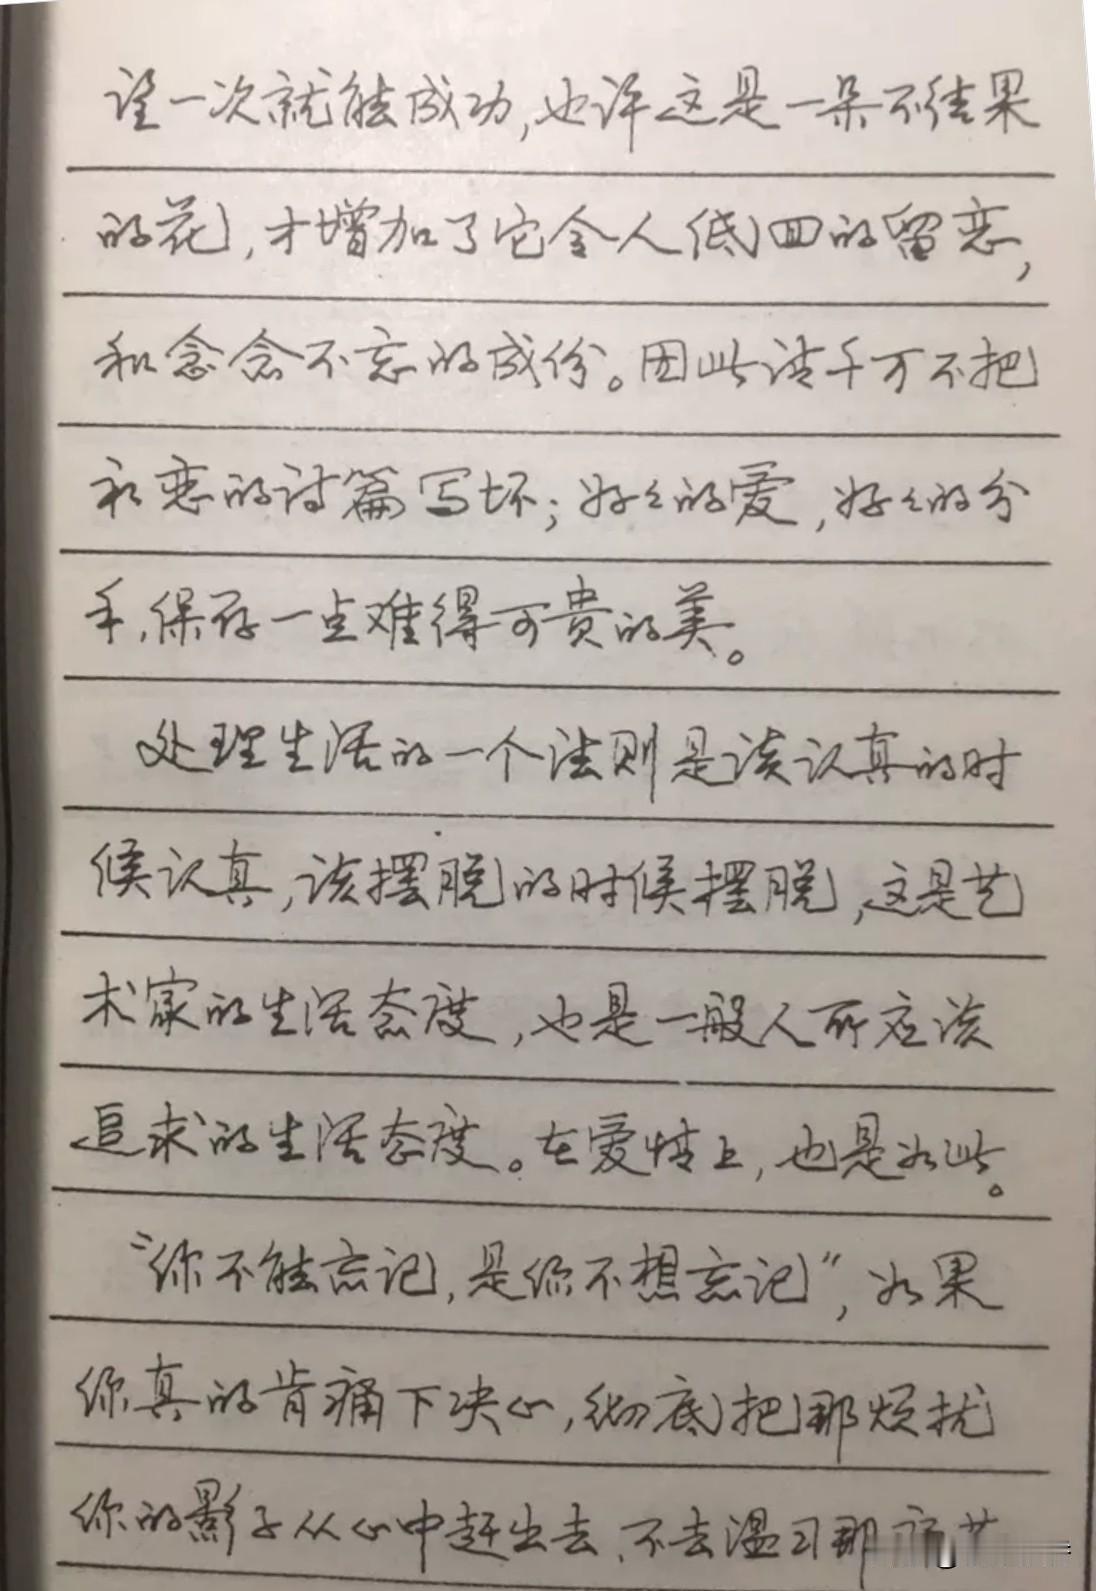 望一次就能成功，也许这是一朵不结果
的花，才增加了它令人低回的留恋，
和念念不忘的成份。因此请千万不把
初恋的诗篇写坏；好々的爱，好々的分
手，保存一点难得可贵的美。
处理生活的一个法则是该认真的时
候认真，该摆脱的时候摆脱，这是艺
术家的生活态度，也是一般人所应该
追求的生活态度。在爱情上，也是如此。
“你不能忘记，是你不想忘记”，如果
你真的肯痛下决心，彻底把那烦扰
你的影子从心中赶出去、不去温习那